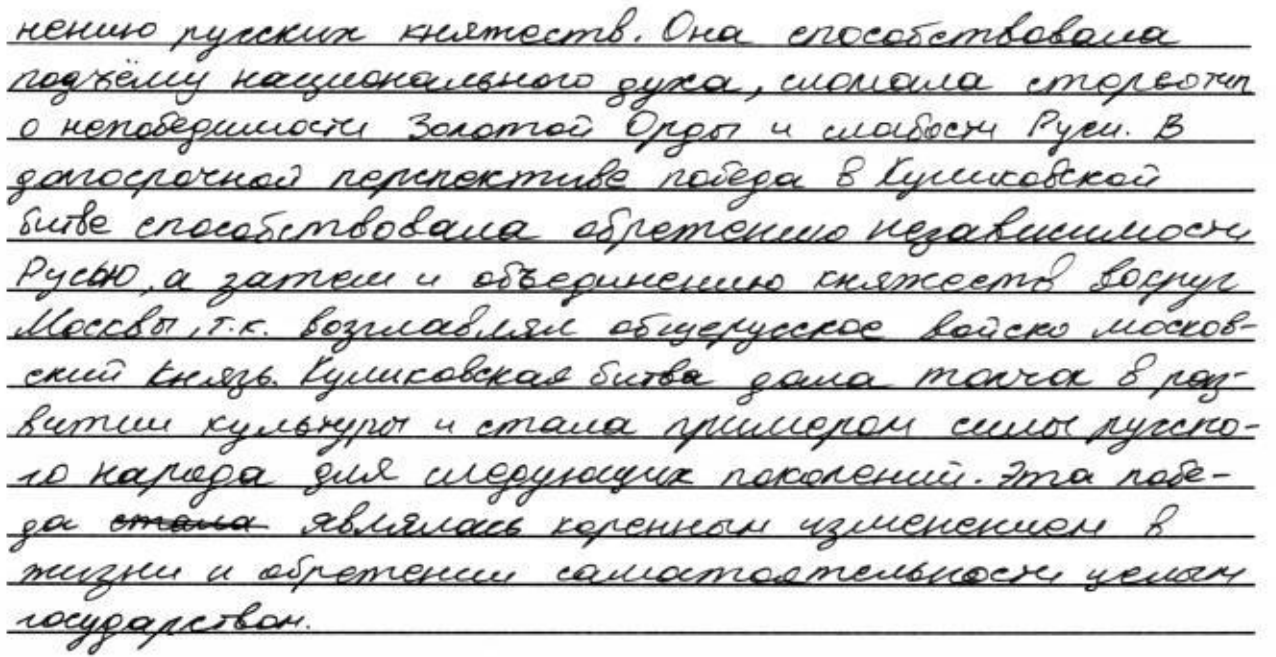 нению русских княжеств. Она способствовала
подъёму национального духа, сломала стереотип
о непобедимости Золотой Орды и слабости Руси. В
долгосрочной перспективе победа в Куликовской
битве способствовала обретению независимости
Русью, а затем и объединению княжеств вокруг
Москвы, т.к. возглавлял общерусское войско москов-
ский князь. Куликовская битва дала толчок в раз-
витии культуры и стала примером силы русско-
го народа для следующих поколений. Эта побе-
да стала являлась коренным изменением в
жизни и обретении самостоятельности целым
государством.